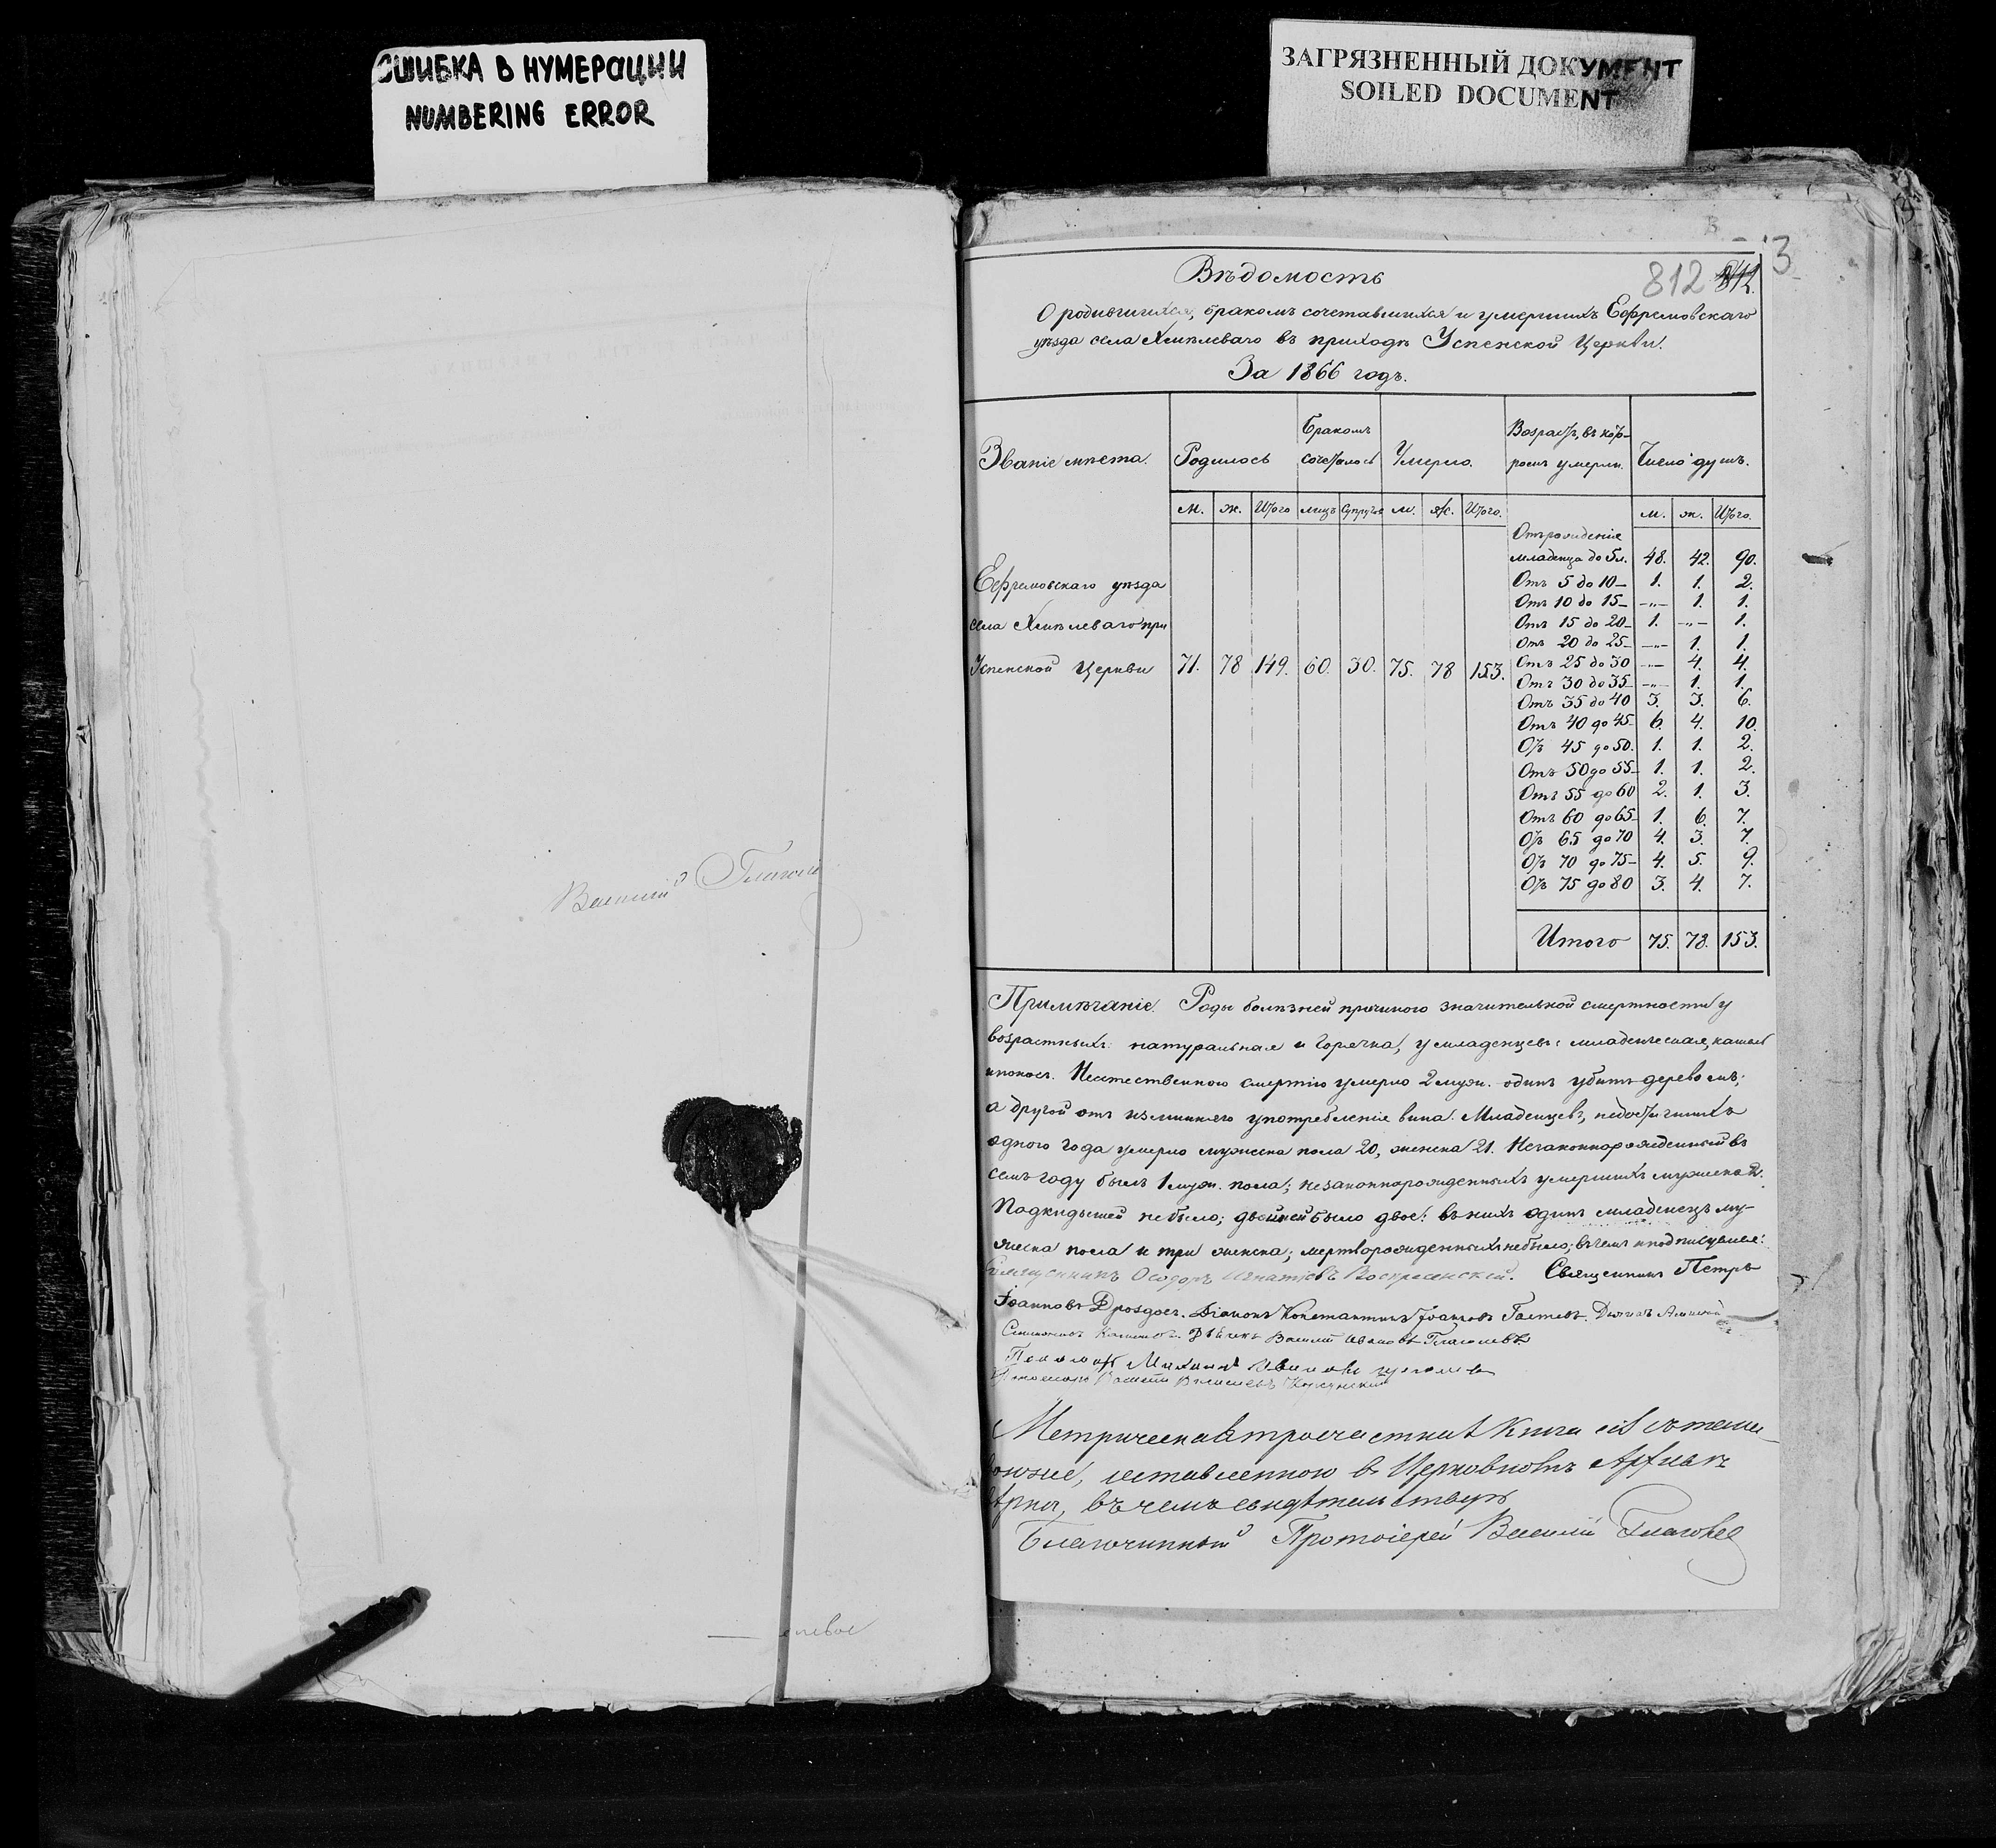 ОШИБКА В НУМЕРАЦИИ
NUMBERING ERROR
ЗАГРЯЗНЕННЫЙ ДОКУМЕНТ
SOILED DOCUMENT
Василий Глаголе
3
812
Вѣдомость
О родившихся, бракомъ сочетавшихся и умершихъ Ефремовскаго
уѣзда села Хмѣлеваго въ приходѣ Успенской Церкви.
За 1866 годъ.
Званіе мѣста. Родилось Бракомъ сочеталось Умерло. Возрастъ, въ которомъ умерли. Число душъ.
м. ж. Итого лицъ супруж м. ж. Итого. м. ж. Итого.
Отъ рожденія
младенца до 5 л. 48. 42. 90.
Ефремовскаго уѣзда
села Хмѣлеваго при
Успенской Церкви 71. 78 149. 60. 30. 75. 78 153.
Отъ 5 до 10 1. 1. 2.
Отъ 10 до 15 -„- 1. 1.
Отъ 15 до 20 1. -„- 1.
Отъ 20 до 25 -„- 1. 1.
Отъ 25 до 30 -„- 4. 4.
Отъ 30 до 35 -„- 1. 1.
Отъ 35 до 40 3. 3. 6.
Отъ 40 до 45 6. 4. 10.
Отъ 45 до 50. 1. 1. 2.
Отъ 50 до 55 1. 1. 2.
Отъ 55 до 60 2. 1. 3.
Отъ 60 до 65 1. 6. 7.
Отъ 65 до 70 4. 3. 7.
Отъ 70 до 75 4. 5. 9.
Отъ 75 до 80 3. 4. 7.
Итого 75. 78. 153.
Примѣчаніе. Роды болѣзней причиною значительной смертности у
возрастныхъ: натуральная и горячка, у младенцевъ: младенческая, кашель
и поносъ. Неестественною смертію умерло 2 муж. одинъ убитъ деревомъ;
а другой отъ излишняго употребленія вина. Младенцевъ, недостигшихъ
одного года умерло мужеска пола 20, женска 21. Незаконнорожденный въ
семъ году былъ 1 муж. пола; незаконнорожденныхъ умершихъ мужеска 2.
Подкидышей небыло; двойней было двое: въ нихъ одинъ младенецъ му-
жеска пола и три женска; мертворожденныхъ небыло; въ чемъ и подписуемся:
Священникъ Ѳеодоръ Игнатіевъ Воскресенскій. Священникъ Петръ
Іоанновъ Дроздовъ. Діаконъ Константинъ Іоанновъ Гастевъ. Дьячекъ Алексѣй
Дьячекъ Василій Ивановъ Глаголевъ
Пономарь Михаилъ Ивановъ
Пономарь Василій Васильевъ
Метрическая троечастная Книга сія съ таме-
вожне, оставленною въ Церковномъ Архивѣ
вѣрна, въ чемъ свидѣтельствую
Благочинный Протоіерей Василій Глаголев